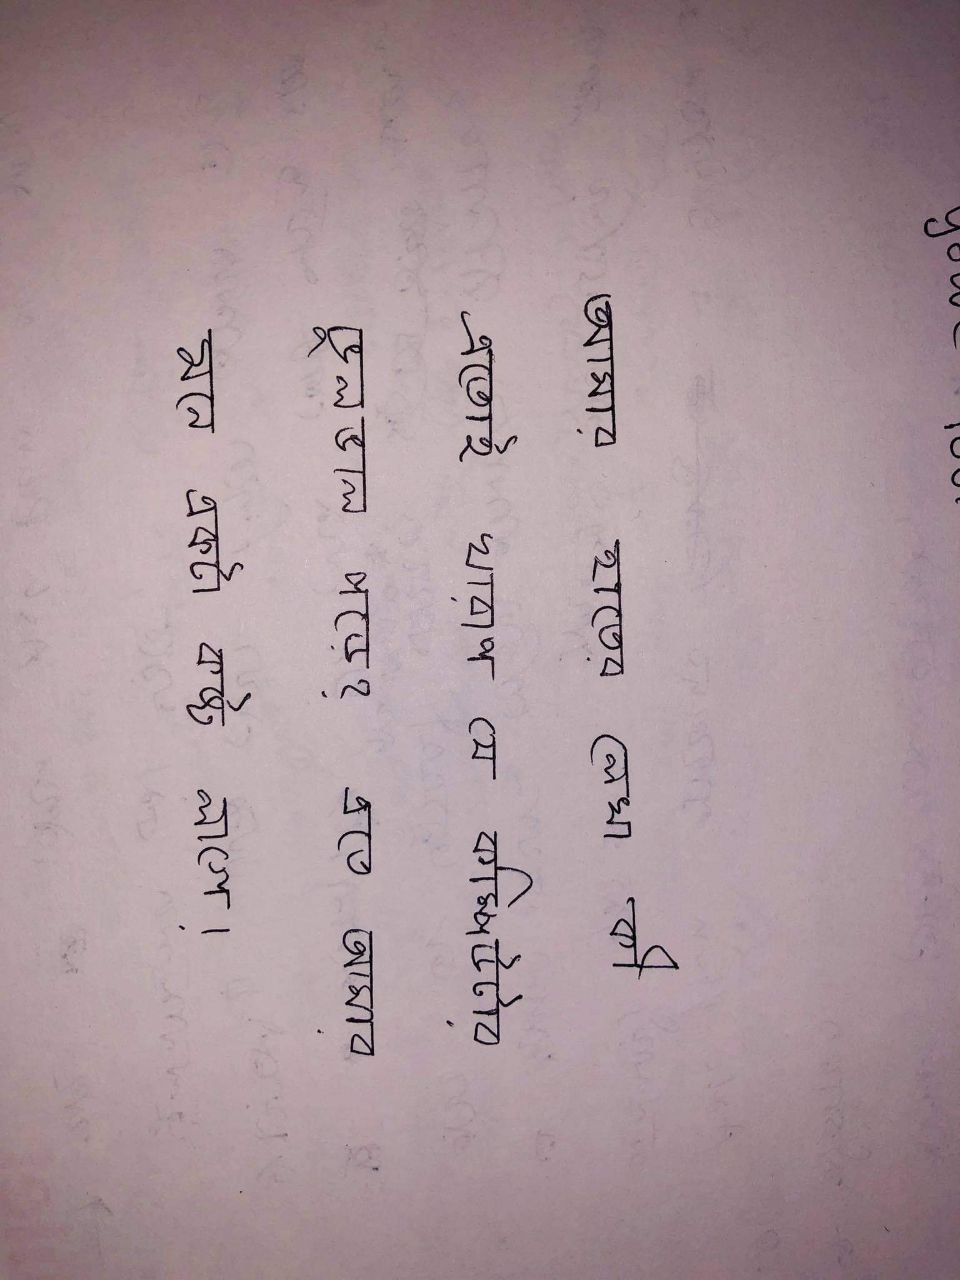 আমার হাতের লেখা কী
এতোই খারাপ যে কম্পিউটার
ভুলভাল পড়ে? এতে আমার
মনে একটা কষ্ট লাগে।